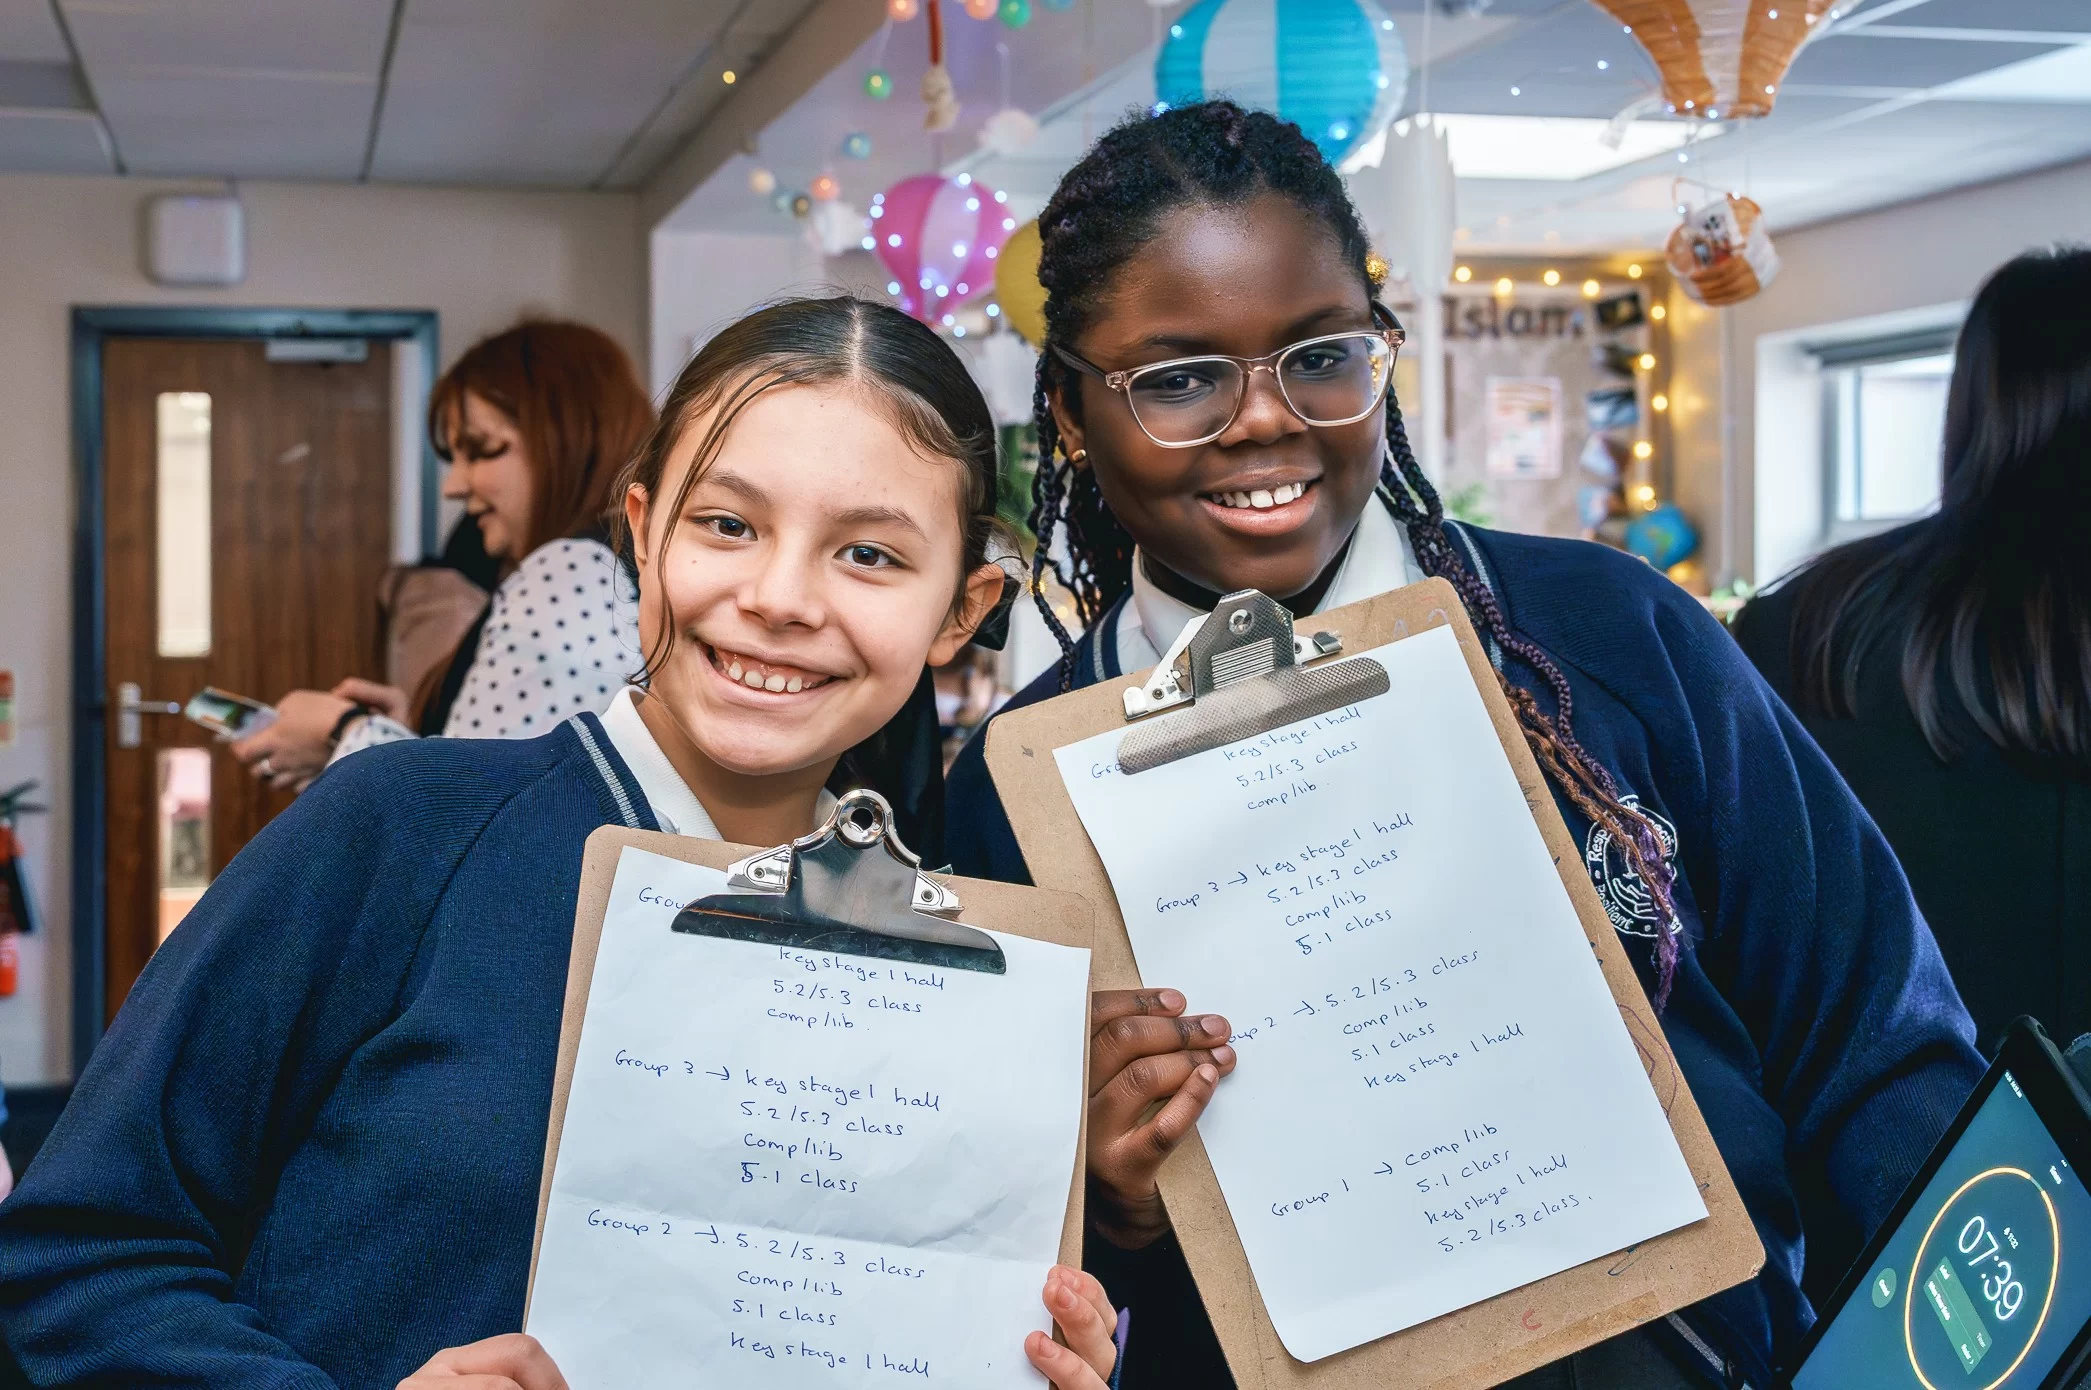 Islam
key stage 1 hall
5.2/5.3 class
comp/lib.
Group 3 → key stage 1 hall
5.2/5.3 class
comp/lib
5.1 class
Group 2 → 5.2/5.3 class
comp/lib
5.1 class
key stage 1 hall
key stage 1 hall
5.2/5.3 class
comp/lib.
Group 3 → key stage 1 hall
5.2/5.3 class
comp/lib
5.1 class
2 → 5.2/5.3 class
comp/lib
5.1 class
key stage 1 hall
Group 1 → comp/lib
5.1 class
key stage 1 hall
5.2/5.3 class.
07:39